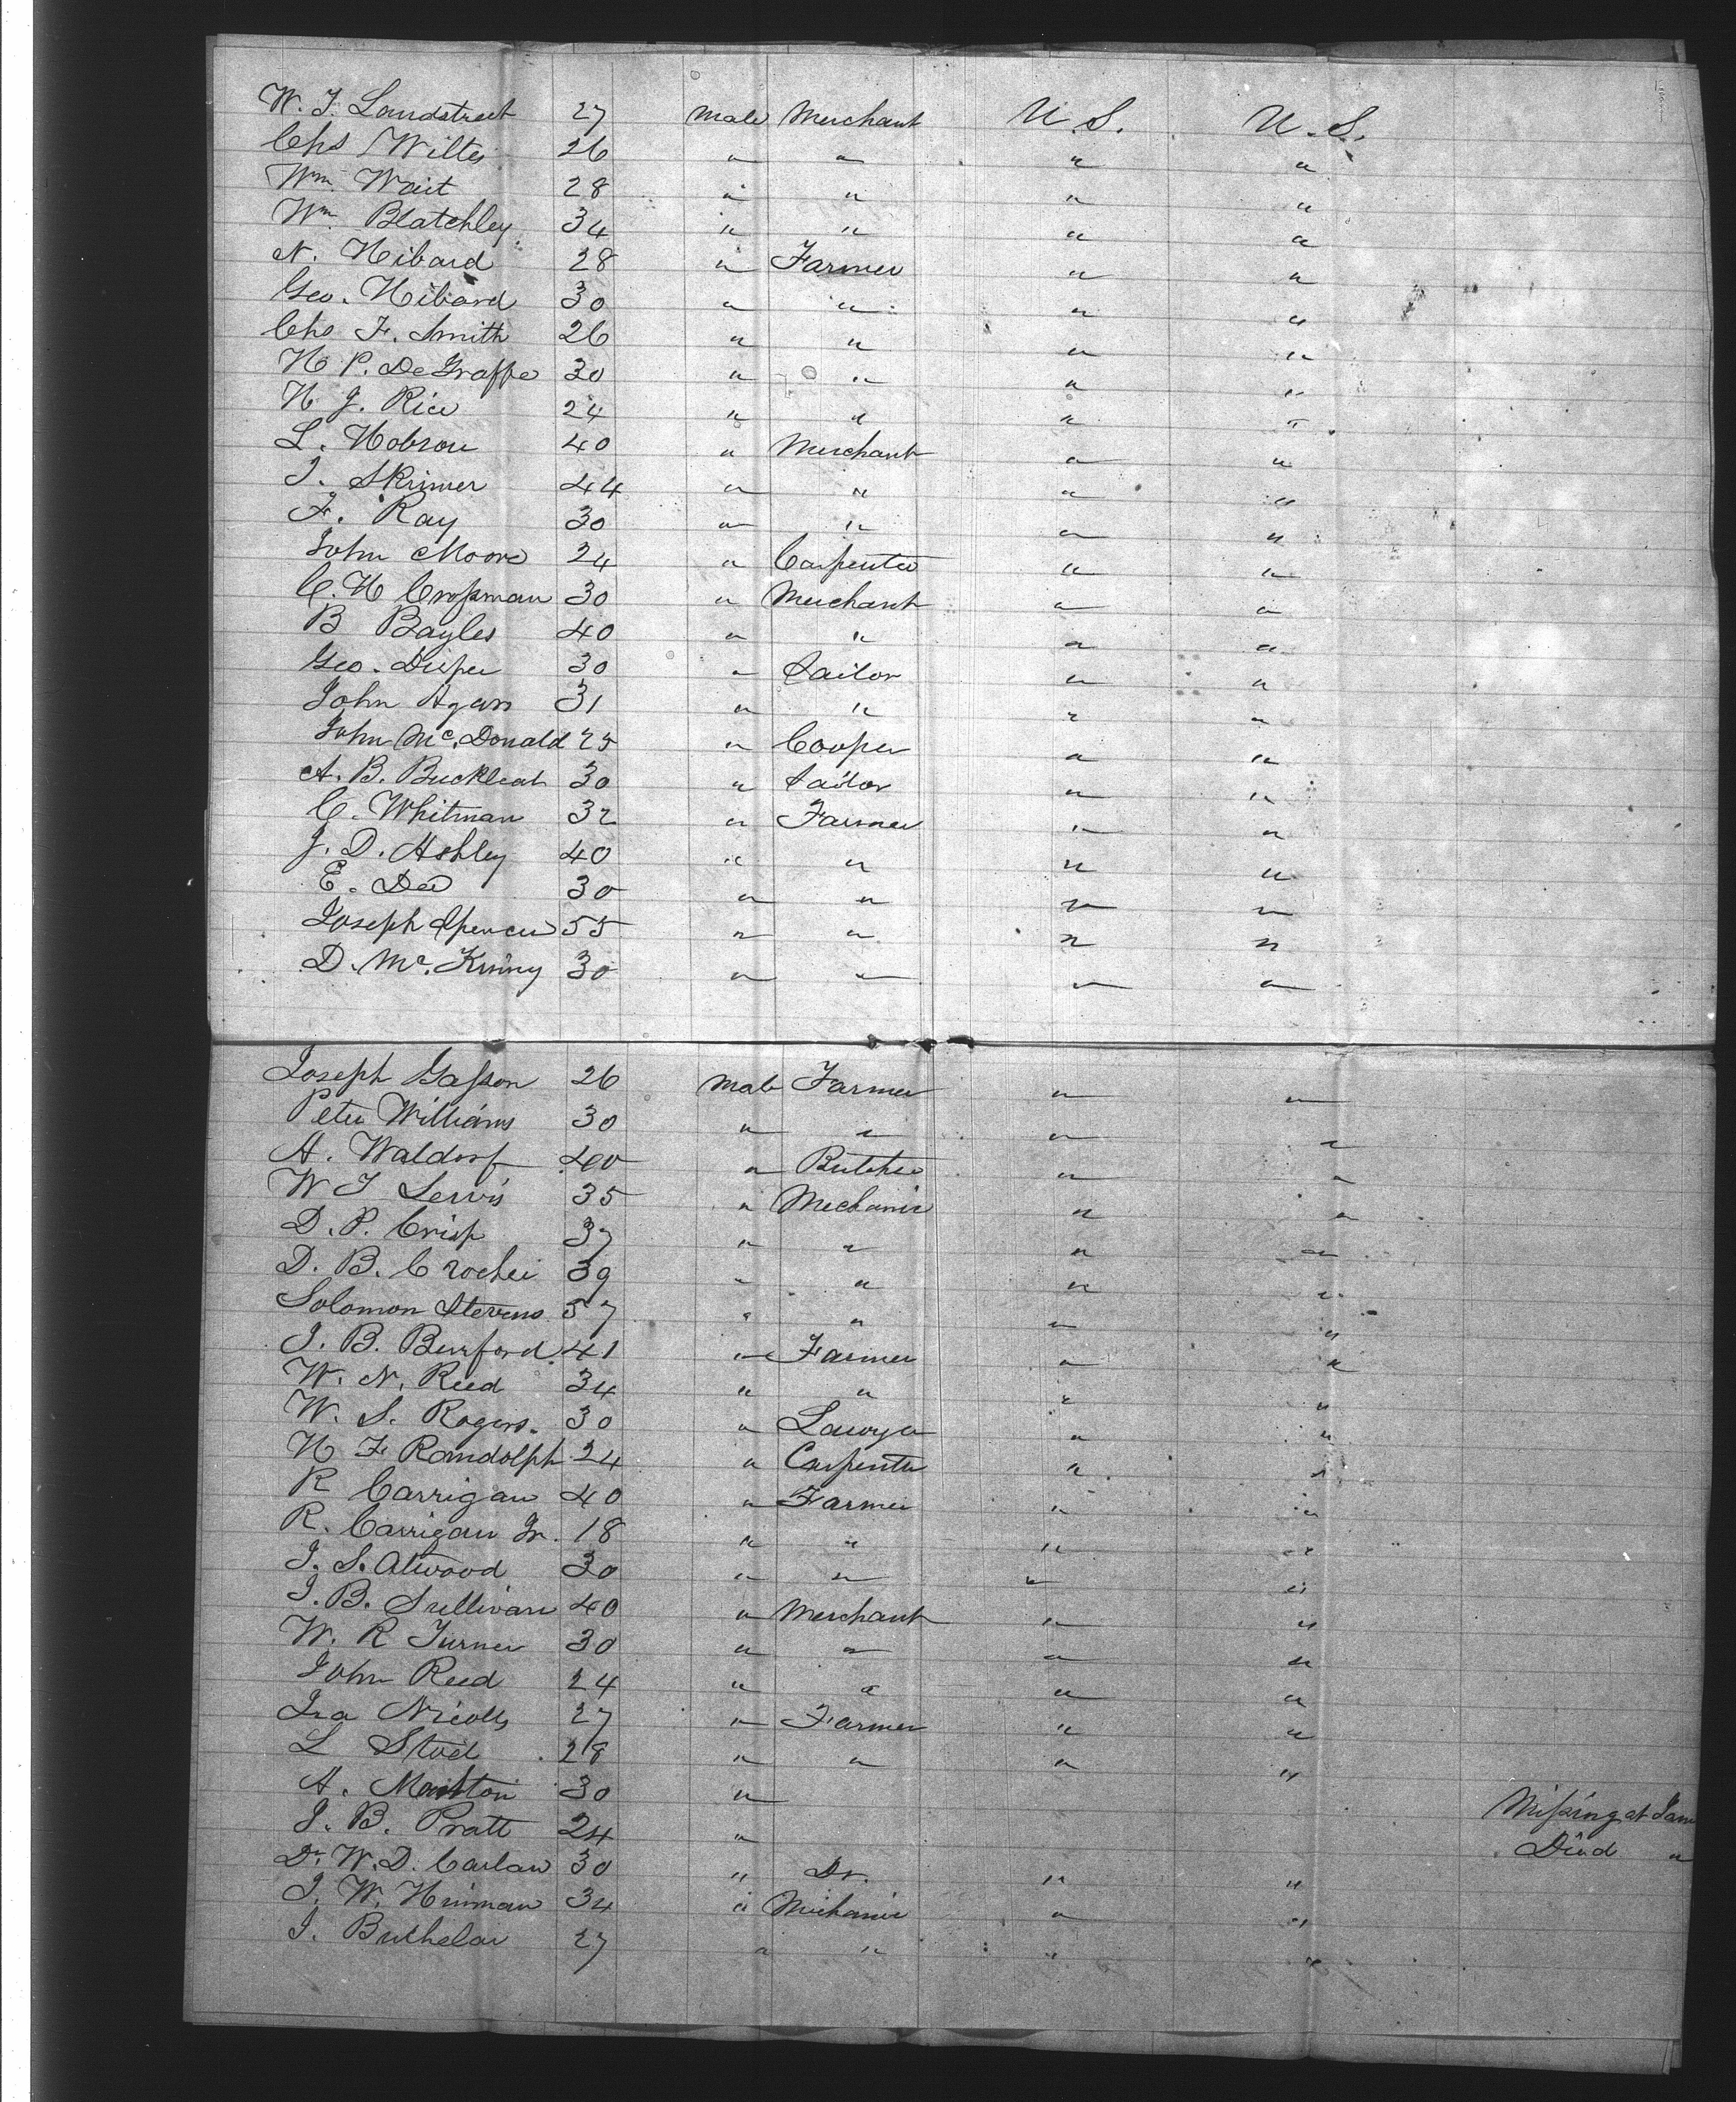 W. T. Landstreet 27 Male Merchant U.S. U.S.
Chs Wiltes 26 " " " "
Wm. Wait 28 " " " "
Wm. Blatchley 34 " " " "
N. Hibard 28 " Farmer " "
Geo. Hibard 30 " " " "
Chs F. Smith 26 " " " "
H. P. DeGraffe 30 " " " "
H. J. Rice 24 " " " "
L. Hobron 40 " Merchant " "
J. Skinner 44 " " " "
F. Ray 30 " " " "
John Moore 24 " Carpenter " "
C. H Crossman 30 " Merchant " "
B Bayles 40 " " " "
Geo. 30 " Sailor " "
John Agars 31 " " " "
John Mc. Donald 25 " Cooper " "
A. B. 30 " Sailor " "
C. Whitman 32 " Farmer " "
J. D. Ashley 40 " " " "
E. Dee 30 " " " "
Joseph Spencer 55 " " " "
D. Mc. Kinny 30 " " " "
Joseph Gasson 26 Male Farmer " "
Peter Williams 30 " " " "
A. Waldorf 40 " Butcher " "
W T Lewis 35 " Mechanic " "
D. P. Crisp 37 " " " "
D. B. 39 " " " "
Solomon Stevens 57 " " " "
J. B. Burford 41 " Farmer " "
W. N. Reed 34 " " " "
W. S. Rogers. 30 " Lawyer " "
H F Randolph 24 " Carpenter " "
R Carrigan 40 " Farmer " "
R. Carrigan Jr. 18 " " " "
J. S. Atwood 30 " " " "
J. B. Sullivan 40 " Merchant " "
W. R Turner 30 " " " "
John Reed 24 " " " "
Ira Nicolls 27 " Farmer " "
L 28 " " " "
A. 30 " Missing at
J. B. Pratt 24 " Died "
Dr. W. D. Carlaw 30 " Dr. " "
J. W. Hinman 34 " Mechanic " "
J. 27 " " " "